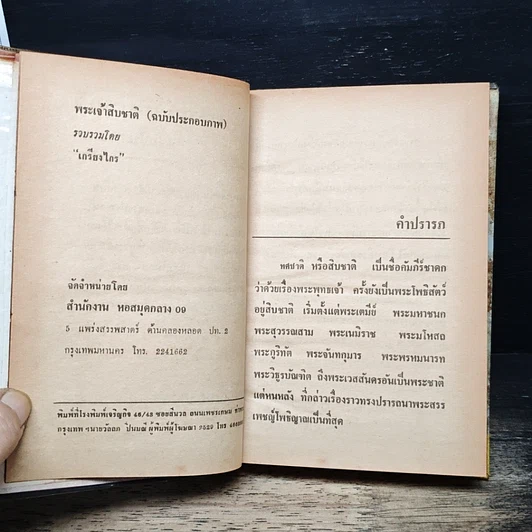 พระเจ้าสิบชาติ (ฉบับประกอบภาพ)
รวบรวมโดย
"เกรียงไกร"
จัดจำหน่ายโดย
สำนักงาน หอสมุดกลาง 09
5 แพร่งสรรพสาตร์ ต้นคลองหลอด ปท. 2
กรุงเทพมหานคร โทร. 2241662
พิมพ์ที่โรงพิมพ์เจริญกิจ 48/43 ซอยสีนวล ถนนเพชรเกษม
กรุงเทพ ฯ ผู้พิมพ์ผู้โฆษณา 2529 โทร
คำปรารภ
ทศชาติ หรือสิบชาติ เป็นชื่อคัมภีร์ชาดก
ว่าด้วยเรื่องพระพุทธเจ้า ครั้งยังเป็นพระโพธิสัตว์
อยู่สิบชาติ เริ่มตั้งแต่พระเตมีย์ พระมหาชนก
พระสุวรรณสาม พระเนมิราช พระมโหสถ
พระภูริทัต พระจันทกุมาร พระพรหมนารท
พระวิธูรบัณฑิต ถึงพระเวสสันดรอันเป็นพระชาติ
แต่หนหลัง ที่กล่าวเรื่องราวทรงปรารถนาพระสรร
เพชญ์โพธิญาณเป็นที่สุด